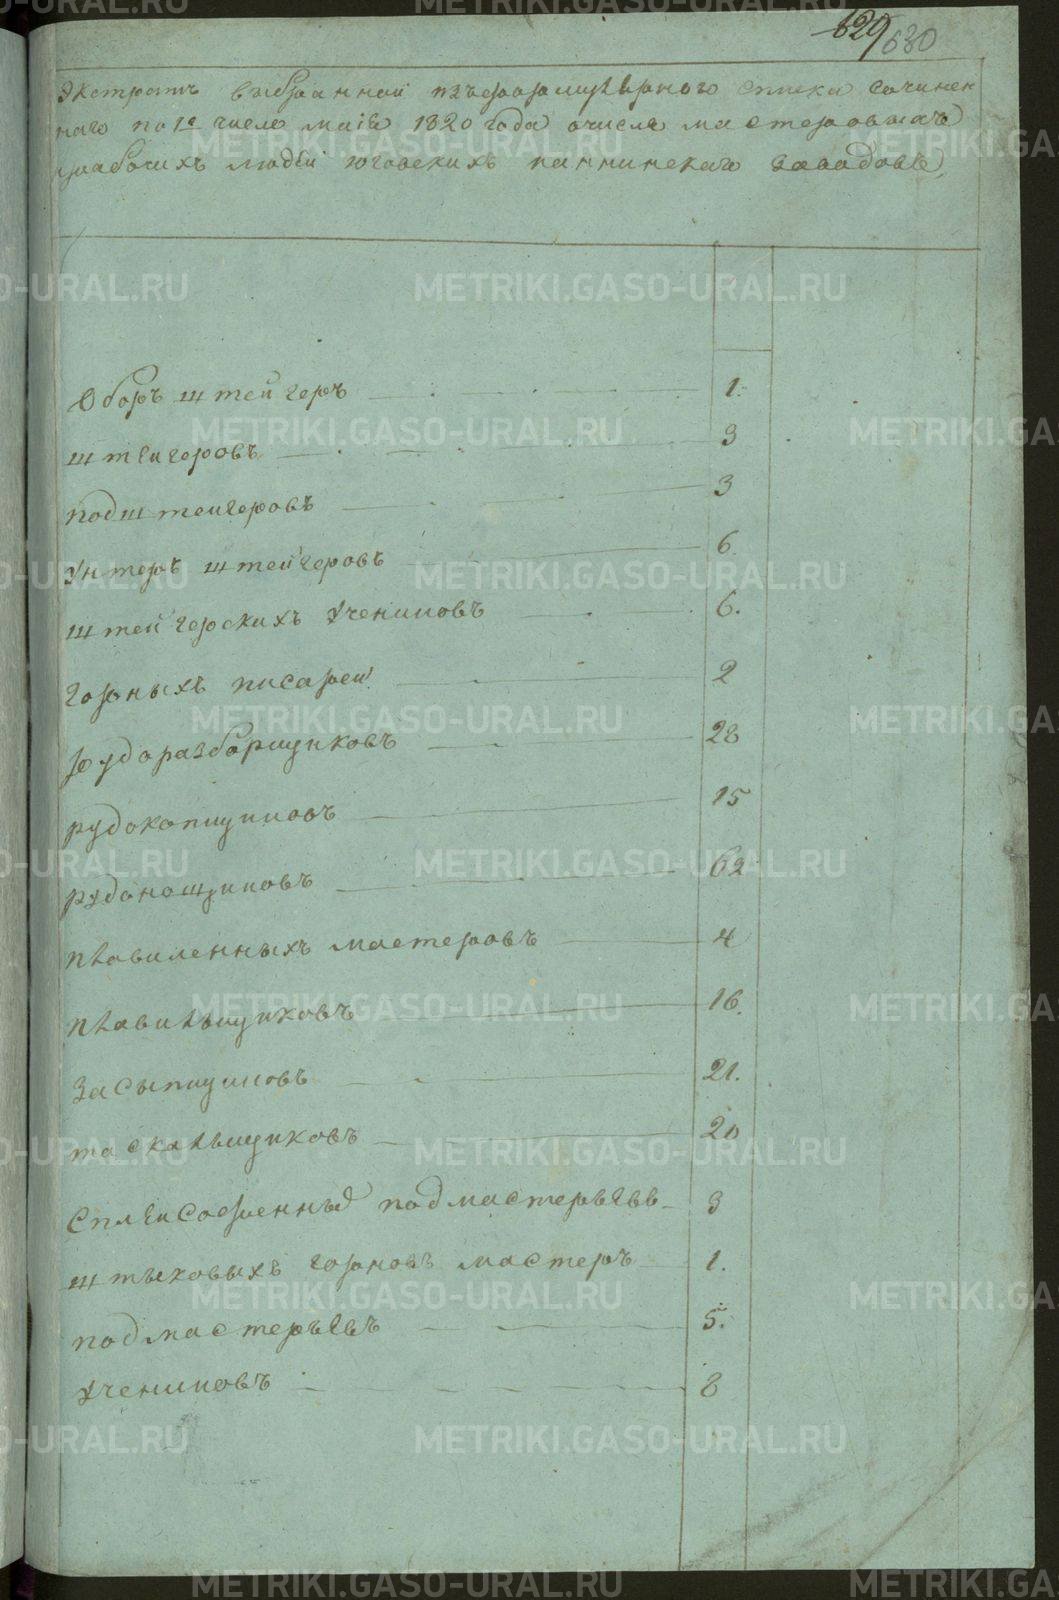 629 630
Экстрактъ выбранной изъ формулярного списка сочинен
наго по 1е число маiя 1820 года о числе мастеровыхъ
и рабочихъ людей юговскихъ каннискаго заводовъ
Оберъ штейгеръ 1.
штеигеровъ 3
подштеигеровъ 3
Унтеръ штейгеровъ 6.
штейгерскихъ Учениковъ 6.
Горныхъ писарей 2
рудоразборщиковъ 28
рудокопщиковъ 15
рудонощиковъ 62
плавиленныхъ мастеровъ 4
плавильщиковъ 16.
Засыпщиковъ 21.
таскальщиковъ 20
Сплейсофенныхъ подмастерьевъ 3
штыковыхъ горновъ мастеръ 1.
подмастерьевъ 5.
Учениковъ 8
METRIKI.GASO-URAL.RU